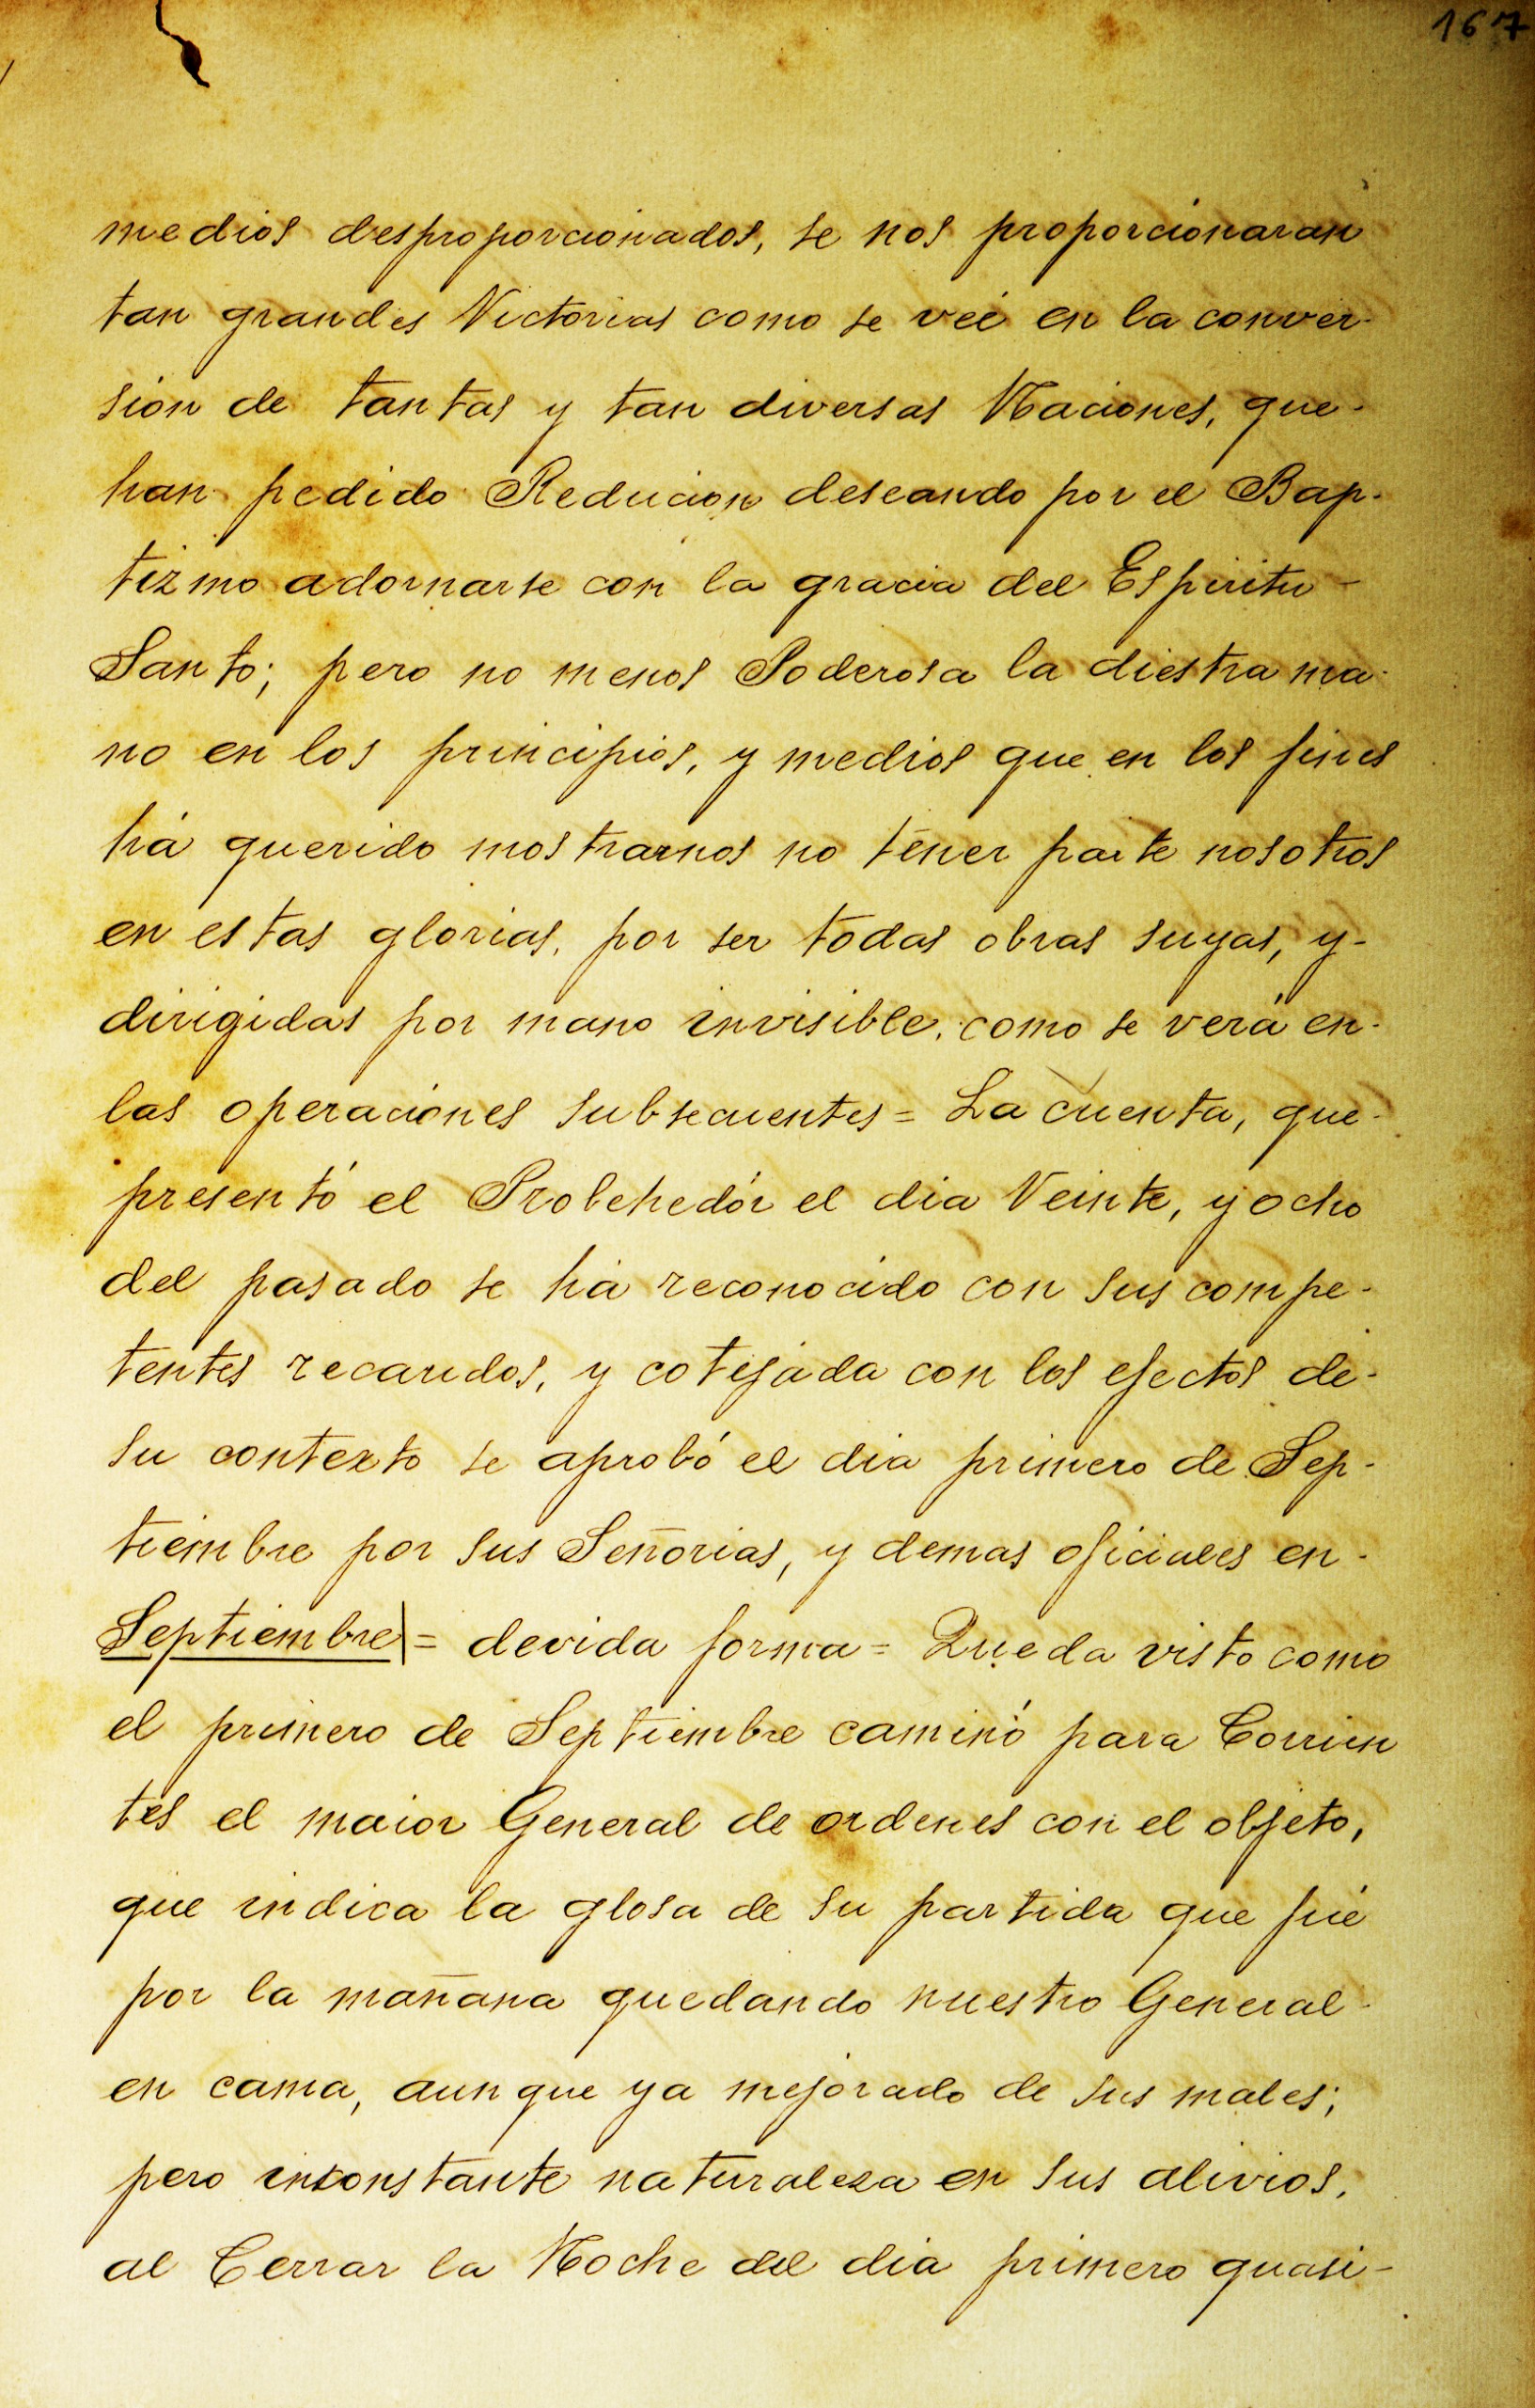 167
medios desproporcionados, se nos proporcionaran
tan grandes Victorias como se veé en la conver-
sion de tantas y tan diversas Naciones, que-
han pedido Reducion deseando por el Bap-
tizmo adornarse con la gracia del Espiritu-
Santo; pero no menos Poderosa la diestra ma-
no en los principios, y medios que en los fines
há querido mostrarnos no tener parte nosotros
en estas glorias, por ser todas obras suyas, y-
dirigidas por mano invisible, como se verá en-
las operaciones subsecuentes = La cuenta, que-
presentó el Probehedór el dia Veinte, y ocho
del pasado se há reconocido con sus compe-
tentes recaudos, y cotejada con los efectos de-
su contexto se aprobó el dia primero de Sep-
tiembre por sus Señorias, y demas oficiales en-
Septiembre| = devida forma = Queda visto como
el primero de Septiembre caminó para Corrien
tes el maior General de ordenes con el objeto,
que indica la glosa de su partida que fué
por la mañana quedando nuestro General-
en cama, aunque ya mejorado de sus males;
pero inconstante naturaleza en sus alivios,
al Cerrar la Noche del dia primero quasi-